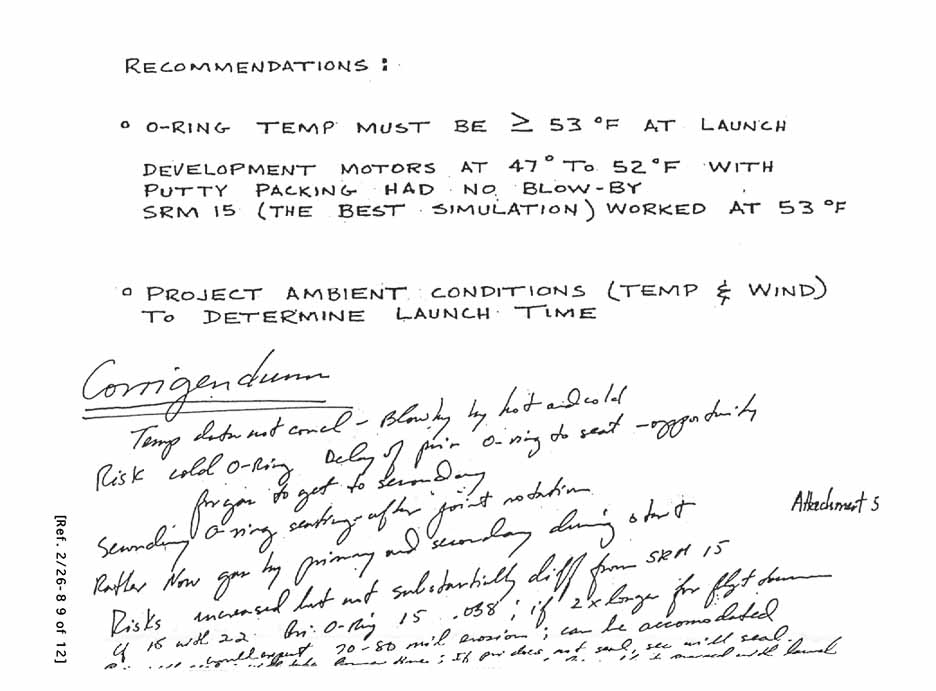 RECOMMENDATIONS :
° O-RING TEMP MUST BE ≥ 53 °F AT LAUNCH
DEVELOPMENT MOTORS AT 47° TO 52 °F WITH
PUTTY PACKING HAD NO BLOW-BY
SRM 15 (THE BEST SIMULATION) WORKED AT 53 °F
° PROJECT AMBIENT CONDITIONS (TEMP & WIND)
TO DETERMINE LAUNCH TIME
Corrigendum
Temp data not concl - Blowby by hot and cold
Risk cold O-Ring Delay of prim O-ring to seat - opportunity
for gas to get to secondary
Secondary O-ring seating after joint rotation
Rather Now gas by primary and secondary during start
Attachment 5
Risks increased but not substantially diff from SRM 15
If 15 with 22 Pri. O-Ring 15 .038 ; if 2x longer for
would expect 70-80 mil erosion ; can be accomodated
; If pri does not seal, sec will seal.
[Ref. 2/26-8 9 of 12]